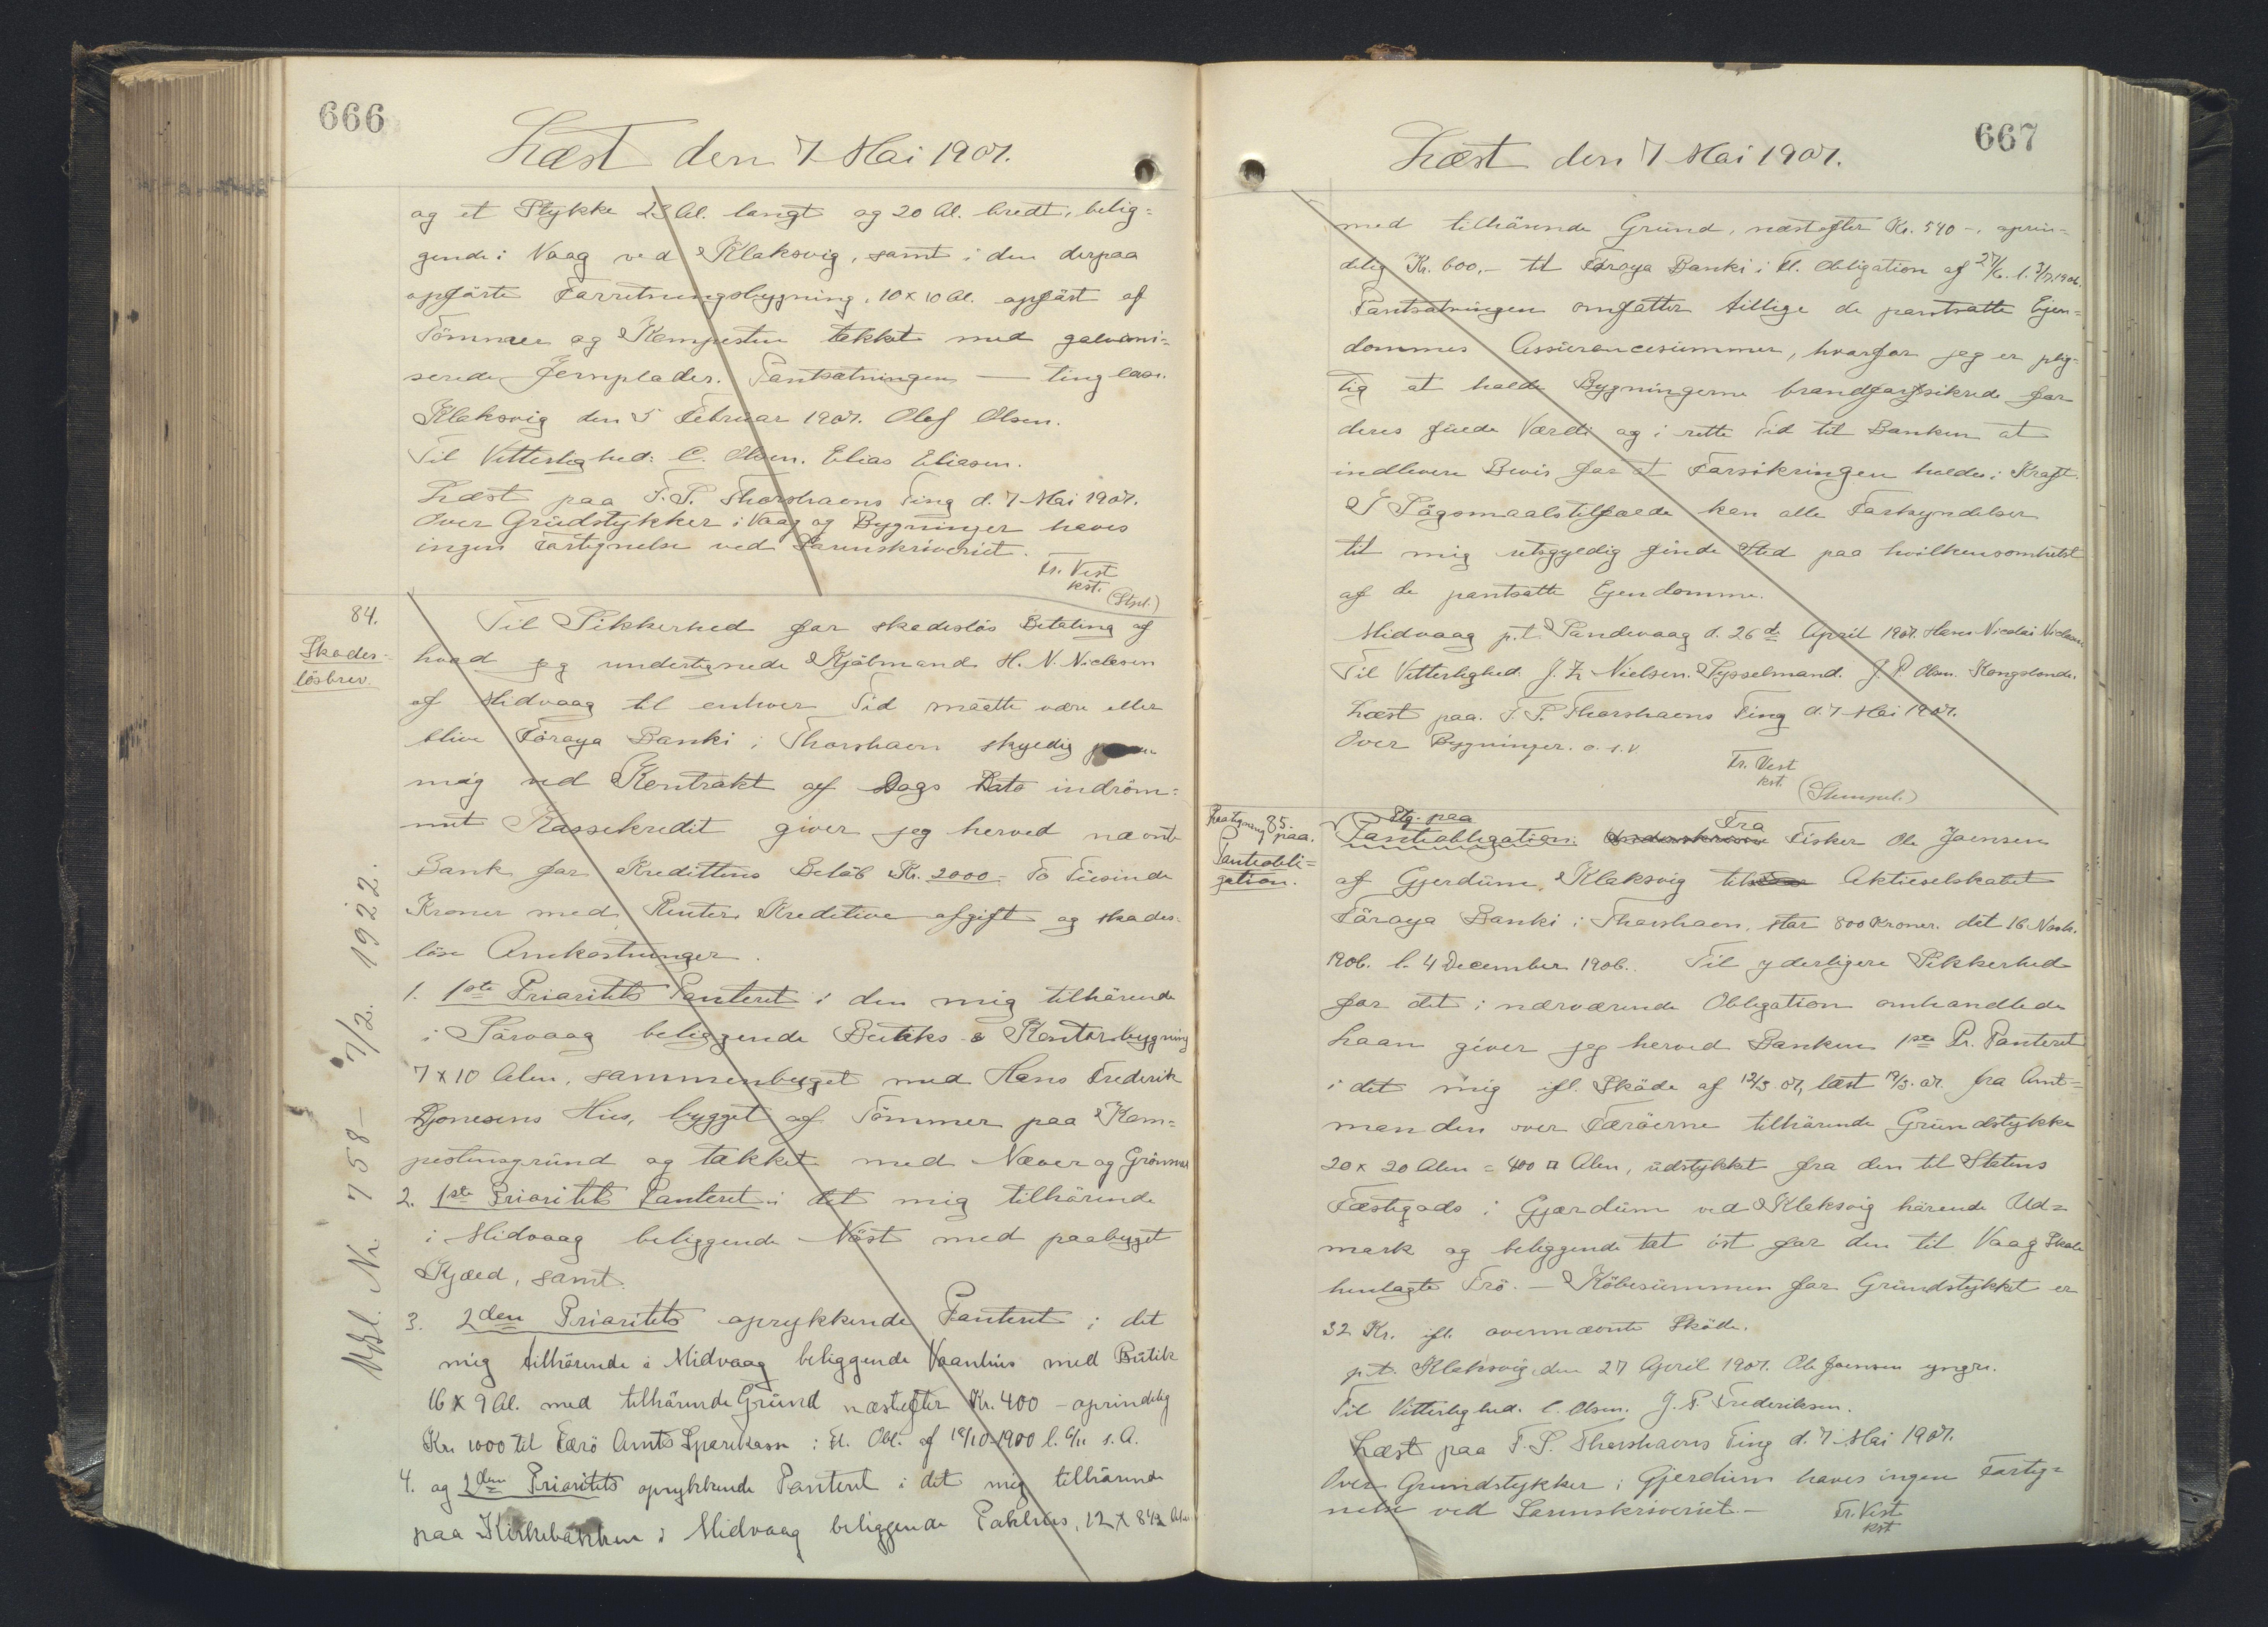 666
Læst den 7 Mai 1907.
og et Stykke 23 Al. langt og 20 Al. bredt, belig-
gende i Vaag ved Klaksvig, samt i den derpaa
opførte Forretningsbygning, 10 x 10 Al. opført af
Tømmer og Kampesten tekket med galvani-
serede Jernplader. Pantsætningen — tinglæse.
Klaksvig den 5 Februar 1907. Olof Olsen.
Til Vitterlighed: C. Olsen. Elias Eliasen.
Læst paa F.S. Thorshavns Ting d. 7 Mai 1907.
Over Grundstykker i Vaag og Bygninger haves
ingen Fortegnelse ved Sorenskriveriet.
Fr. Vest
kst.
(Stpl.)
84.
Skades-
løsbrev.
Til Sikkerhed for skadesløs Betaling af
hvad jeg undertegnede Kjøbmand H. N. Niclasen
af Midvaag til enhver Tid maatte være eller
blive Føroya Banki i Thorshavn skyldig
mig ved Kontrakt af Dags Dato indrøm-
met Kassekredit giver jeg herved nævnte
Bank for Kredittens Beløb Kr. 2000 - To Tusinde
Kroner med Renter, Kreditive afgift og skades-
løse Omkostninger.
1. 1ste Prioritets Panteret i den mig tilhørende
i Sørvaag beliggende Butiks & Kontorbygning
7 x 10 Alen, sammenbygget med Hans Frederik
Djonesens Hus, bygget af Tømmer paa Kam-
pestensgrund og tækket med Næver og Grønsvær
2. 1ste Prioritets Panteret i det mig tilhørende
i Midvaag beliggende Nøst med paabygget
Kjæld, samt
3. 2den Prioritets oprykkende Panteret i det
mig tilhørende i Midvaag beliggende Vaanhus med Butik
16 x 9 Al. med tilhørende Grund næstefter Kr. 400 - oprindelig
Kr. 1000 til Færø Amts Sparekasse i Fl. Obl. af 18/10 1900 l. 6/11 s. A.
4. og 2den Prioritets oprykkende Panteret i det mig tilhørende
paa Kirkebakken i Midvaag beliggende Pakhus, 12 x 8½ Alen
Afl. Nr. 758 - 7/2. 1922.
667
Læst den 7 Mai 1907.
med tilhørende Grund, næstefter Kr. 540 -, oprin-
delig Kr. 600,- til Føroya Banki i Fl. Obligation af 27/6. l. 3/7 1906.
Pantsætningen omfatter tillige de pantsatte Ejen-
dommes Assurancesummer, hvorfor jeg er plig-
tig at holde Bygningerne brandforsikrede for
deres fulde Værdi og i rette Tid til Banken at
indlevere Bevis for at Forsikringen holdes i Kraft.
I Søgsmaalstilfælde kan alle Forkyndelser
til mig retsgyldig finde Sted paa hvilkensomhelst
af de pantsatte Ejendomme.
Midvaag p.t. Sandevaag d. 26de April 1907. Hans Nicolai Niclasen
Til Vitterlighed J. Z. Nielsen. Sysselmand. J. P. Olsen. Kongsbonde.
Læst paa F. S. Thorshavns Ting d. 7 Mai 1907.
Over Bygninger. o. s. v
Fr. Vest
kst.
(Stempel.)
85.
Paategning paa.
Panteobli-
gation.
Ptg. paa
Panteobligation. Fra Fisker Ole Joensen
af Gjerdum Klaksvig til Aktieselskabet
Føroya Banki i Thorshavn, stor 800 Kroner. dat 16 Novb.
1906. l. 4 December 1906. Til yderligere Sikkerhed
for det i nærværende Obligation omhandlede
Laan giver jeg herved Banken 1ste Pr. Panteret
i det mig ifl. Skøde af 12/3 07, læst 19/3. 07. fra Amt-
manden over Færøerne tilhørende Grundstykke
20 x 20 Alen = 400 □ Alen, udstykket fra den til Statens
Fæstegods i Gjærdum ved Klaksvig hørende Ud-
mark og beliggende tæt øst for den til Vaag Skole
henlagte Trø. — Købesummen for Grundstykket er
32 Kr. ifl. ovennævnte Skøde.
p.t. Klaksvig, den 27 April 1907. Ole Joensen yngre.
Til Vitterlighed. C. Olsen. J. P. Frederiksen.
Læst paa F. S. Thorshavns Ting d. 7 Mai 1907.
Over Grundstykker i Gjerdum haves ingen Forteg-
nelse ved Sorenskriveriet. -
Fr. Vest
kst